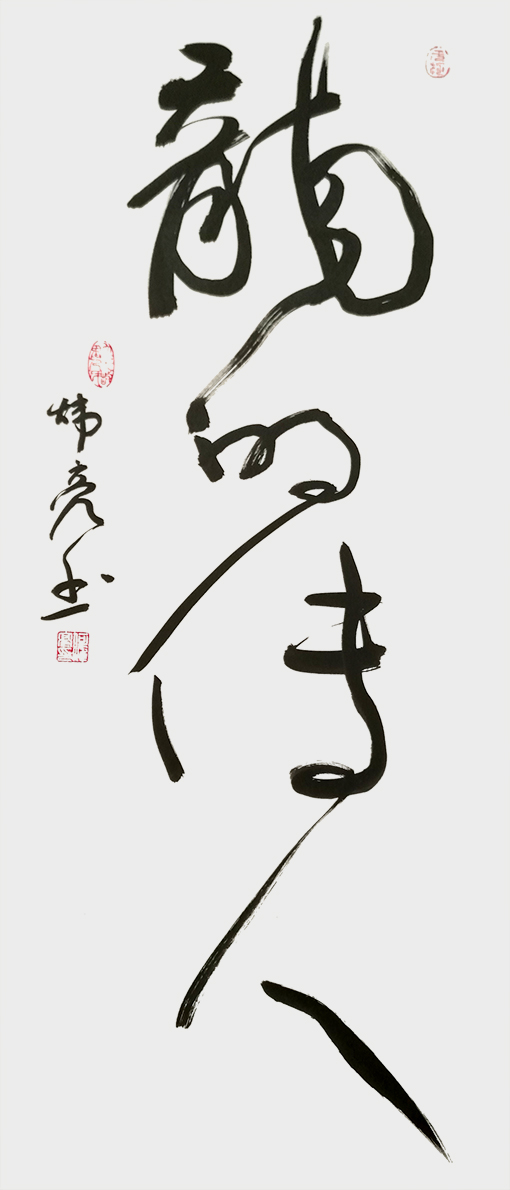 龍的传人
炜亮书